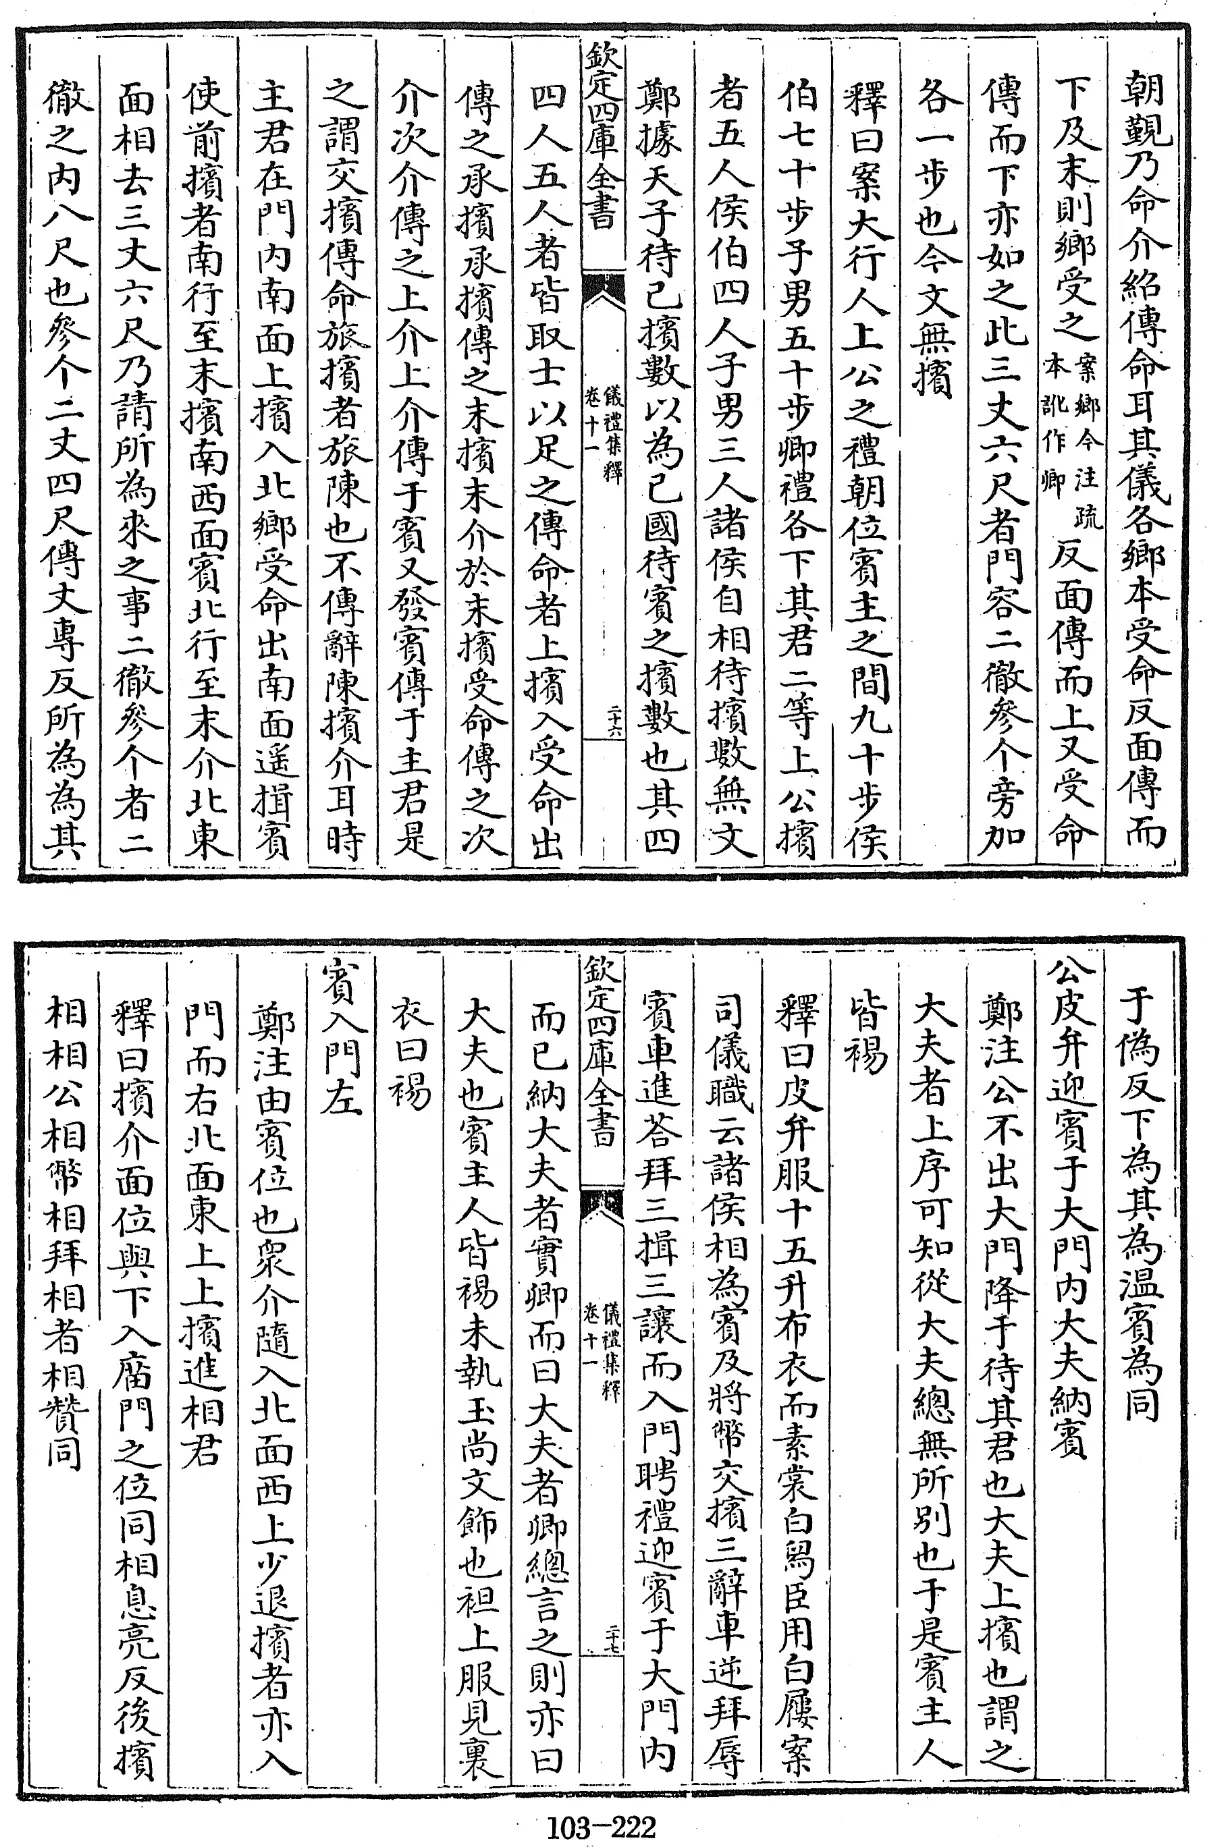 朝覲乃命介紹傳命耳其儀各鄉本受命反面傳而
下及末則鄉受之案鄉今注疏本訛作卿反面傳而上又受命
傳而下亦如之此三丈六尺者門容二徹參个旁加
各一步也今文無擯
釋曰案大行人上公之禮朝位賓主之間九十步侯
伯七十步子男五十步卿禮各下其君二等上公擯
者五人侯伯四人子男三人諸侯自相待擯數無文
鄭據天子待己擯數以為己國待賓之擯數也其四
欽定四庫全書
儀禮集釋
卷十一
二十六
四人五人者皆取士以足之傳命者上擯入受命出
傳之承擯承擯傳之末擯末介於末擯受命傳之次
介次介傳之上介上介傳于賓又發賓傳于主君是
之謂交擯傳命旅擯者旅陳也不傳辭陳擯介耳時
主君在門内南面上擯入北鄉受命出南面遥揖賓
使前擯者南行至末擯南西面賓北行至末介北東
面相去三丈六尺乃請所為來之事二徹參个者二
徹之内八尺也參个二丈四尺傳丈專反所為為其
于偽反下為其為温賓為同
公皮弁迎賓于大門内大夫納賓
鄭注公不出大門降于待其君也大夫上擯也謂之
大夫者上序可知從大夫總無所别也于是賓主人
皆裼
釋曰皮弁服十五升布衣而素裳白舄臣用白屨案
司儀職云諸侯相為賓及將幣交擯三辭車逆拜辱
賓車進荅拜三揖三讓而入門聘禮迎賓于大門内
欽定四庫全書
儀禮集釋
卷十一
二十七
而已納大夫者實卿而曰大夫者卿總言之則亦曰
大夫也賓主人皆裼未執玉尚文飾也袒上服見裏
衣曰裼
賓入門左
鄭注由賓位也衆介隨入北面西上少退擯者亦入
門而右北面東上上擯進相君
釋曰擯介面位與下入廟門之位同相息亮反後擯
相相公相幣相拜相者相贊同
103-222